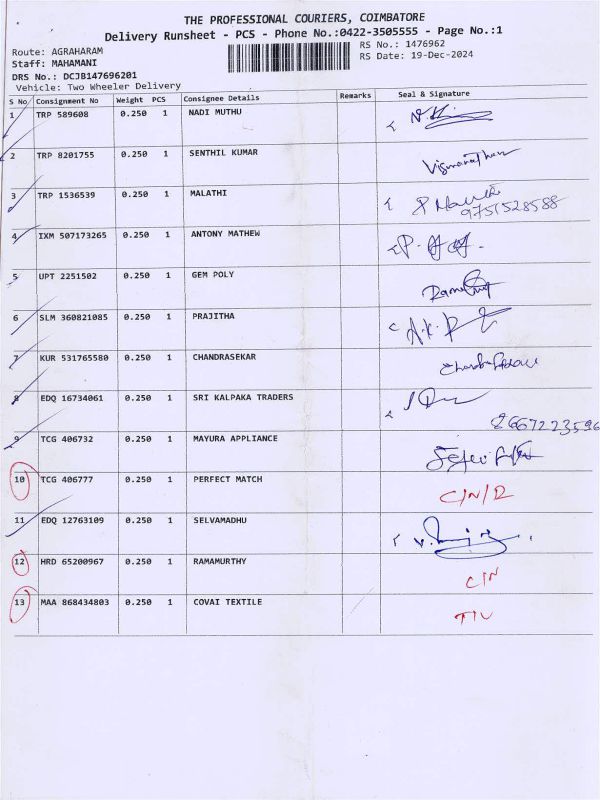 THE PROFESSIONAL COURIERS, COIMBATORE
Delivery Runsheet - PCS - Phone No.:0422-3505555 - Page No.:1
Route: AGRAHARAM
RS No.: 1476962
Staff: MAHAMANI
RS Date: 19-Dec-2024
DRS No.: DCJB147696201
Vehicle: Two Wheeler Delivery
S No Consignment No Weight PCS Consignee Details Remarks Seal & Signature
1 TRP 589608 0.250 1 NADI MUTHU
2 TRP 8201755 0.250 1 SENTHIL KUMAR Viswanathan
3 TRP 1536539 0.250 1 MALATHI
9751528588
4 IXM 507173265 0.250 1 ANTONY MATHEW
5 UPT 2251502 0.250 1 GEM POLY
6 SLM 360821085 0.250 1 PRAJITHA
7 KUR 531765580 0.250 1 CHANDRASEKAR
8 EDQ 16734061 0.250 1 SRI KALPAKA TRADERS
9 TCG 406732 0.250 1 MAYURA APPLIANCE
10 TCG 406777 0.250 1 PERFECT MATCH C/N/R
11 EDQ 12763109 0.250 1 SELVAMADHU
12 HRD 65200967 0.250 1 RAMAMURTHY C/N
13 MAA 868434803 0.250 1 COVAI TEXTILE